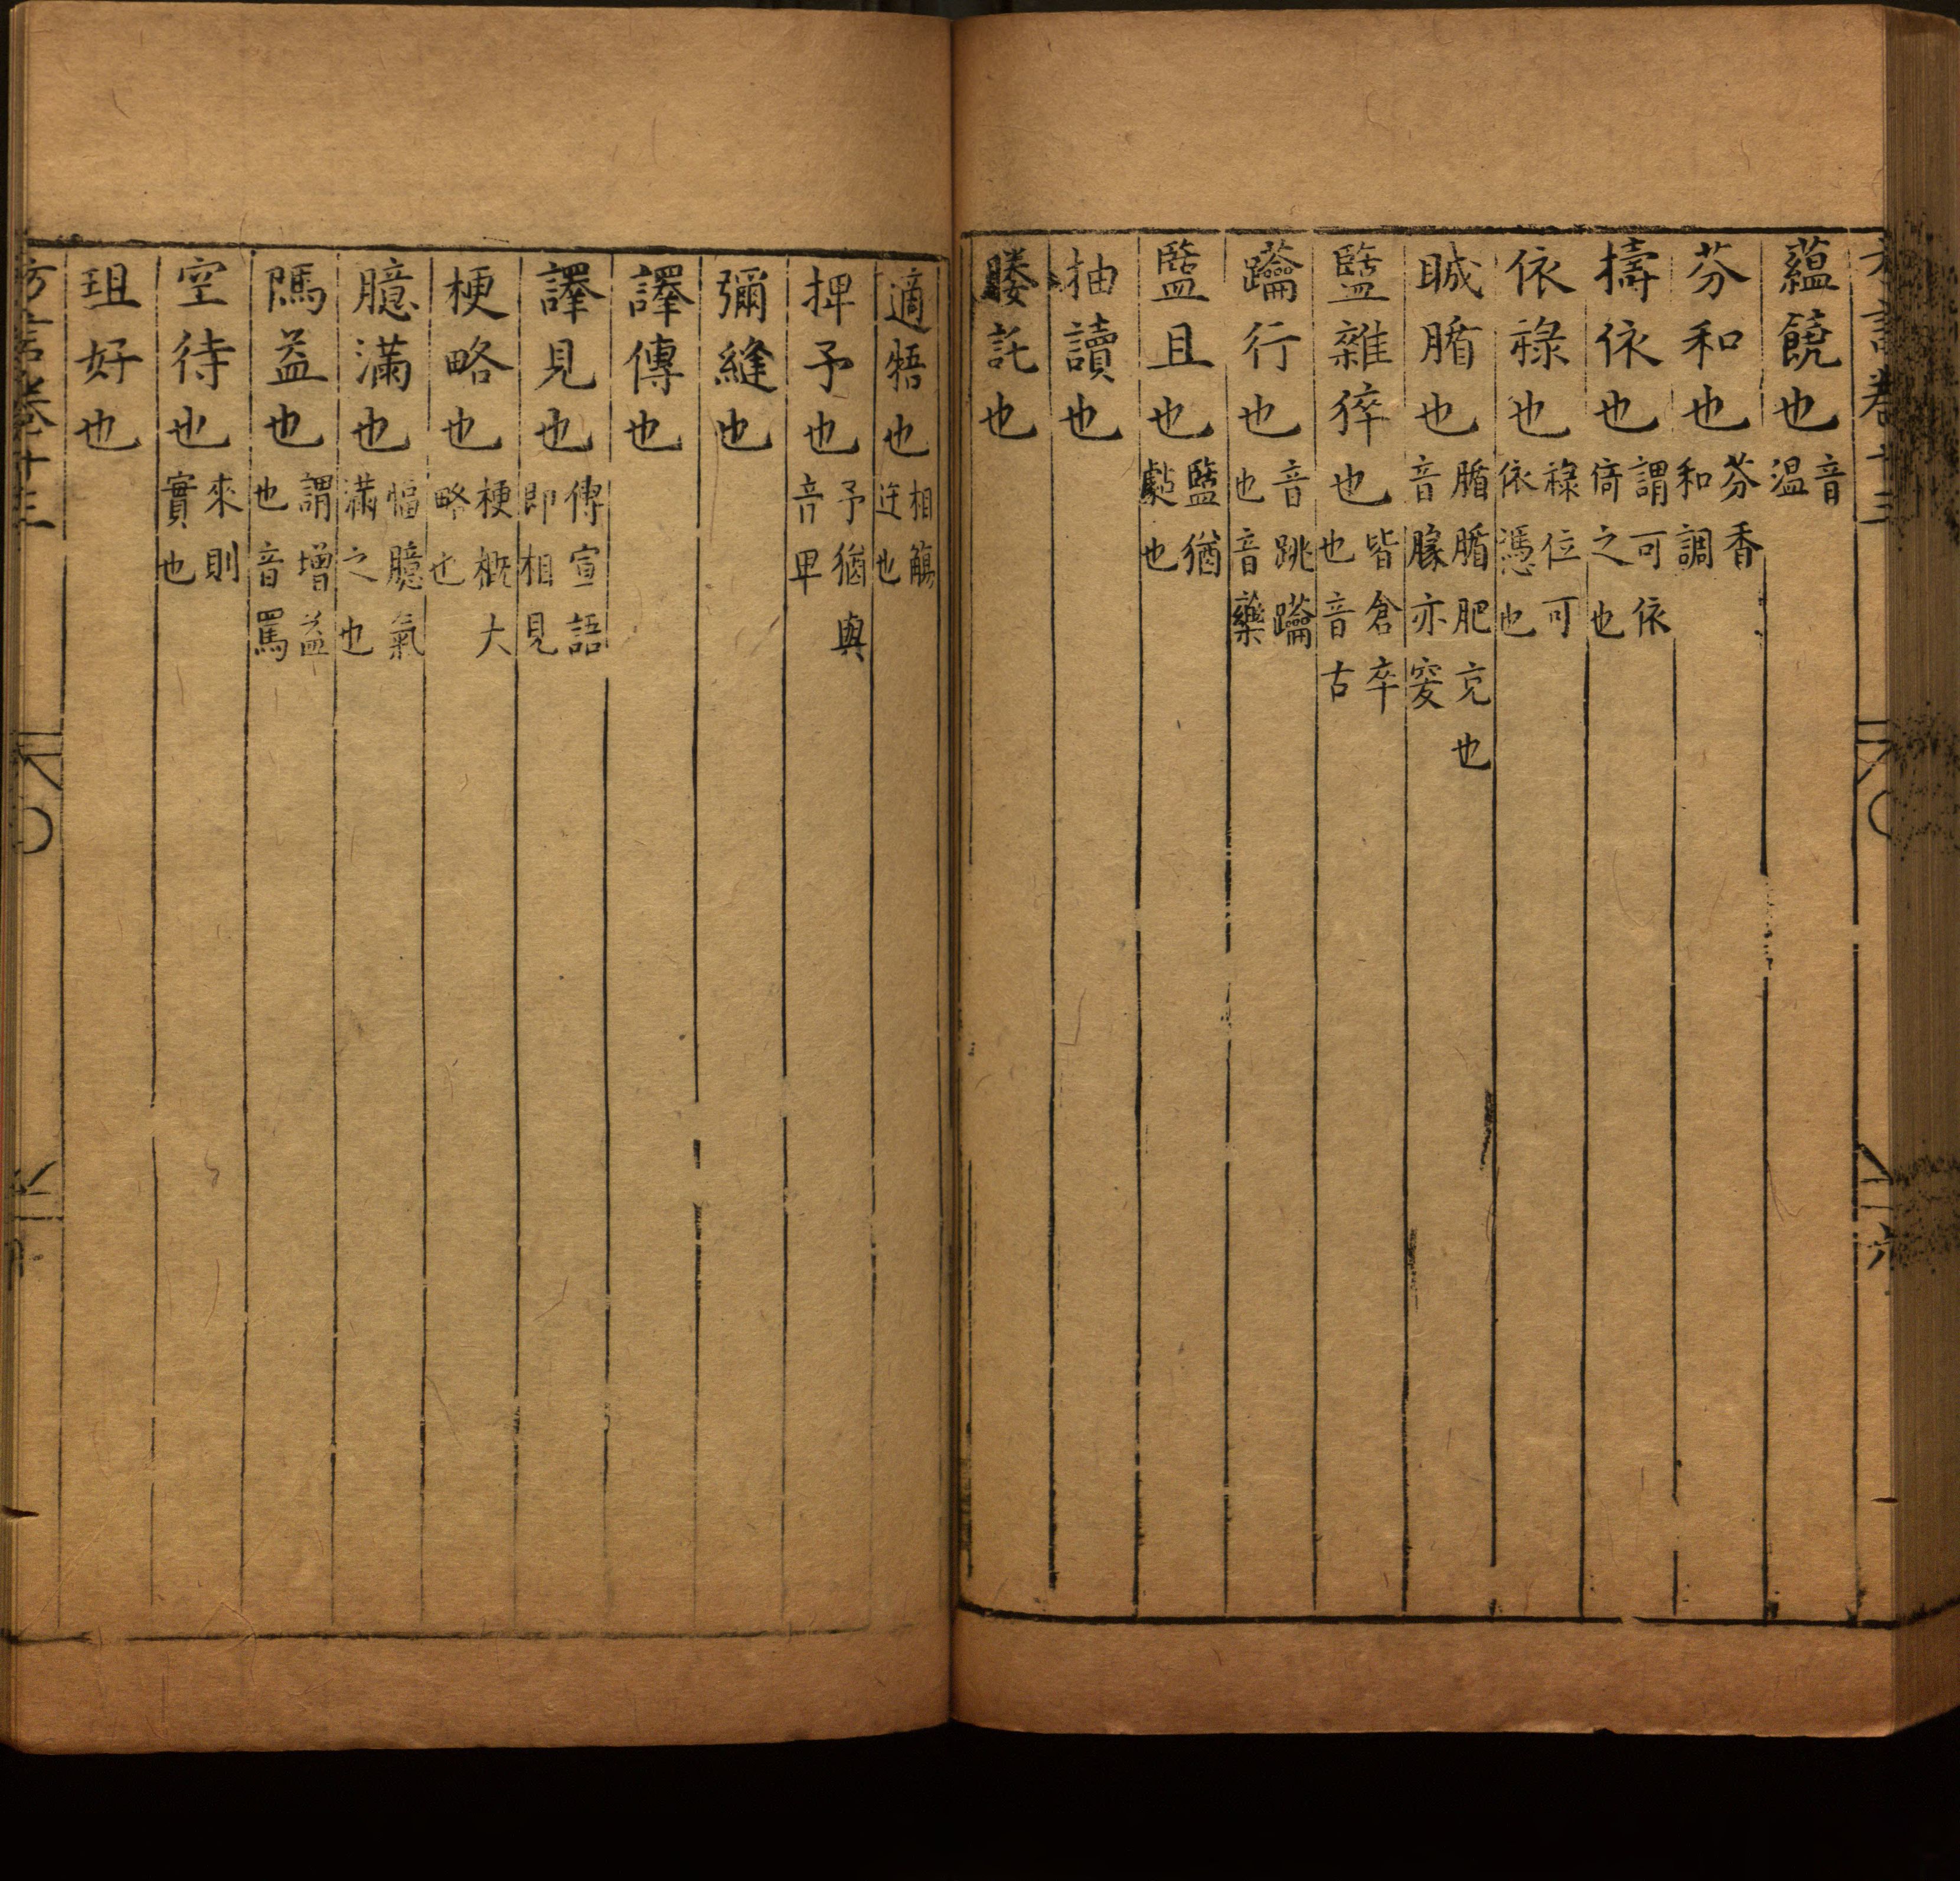 蘊饒也音温
芬和也芬香和調
擣依也謂可依倚之也
依祿也祿位可依憑也
䀕腯也腯腯肥充也音腞亦突
盬雜猝也皆倉卒也音古
蹹行也音跳也音藥
盬且也盬猶㪣也
抽讀也
媵託也
適牾也相觸迕也
捭予也予猶與音卑
彌縫也
譯傳也
譯見也傳宣語即相見
梗略也梗概大略也
臆滿也愊臆氣滿之也
隝益也謂增益也音罵
空待也來則實也
珇好也
方言卷十三